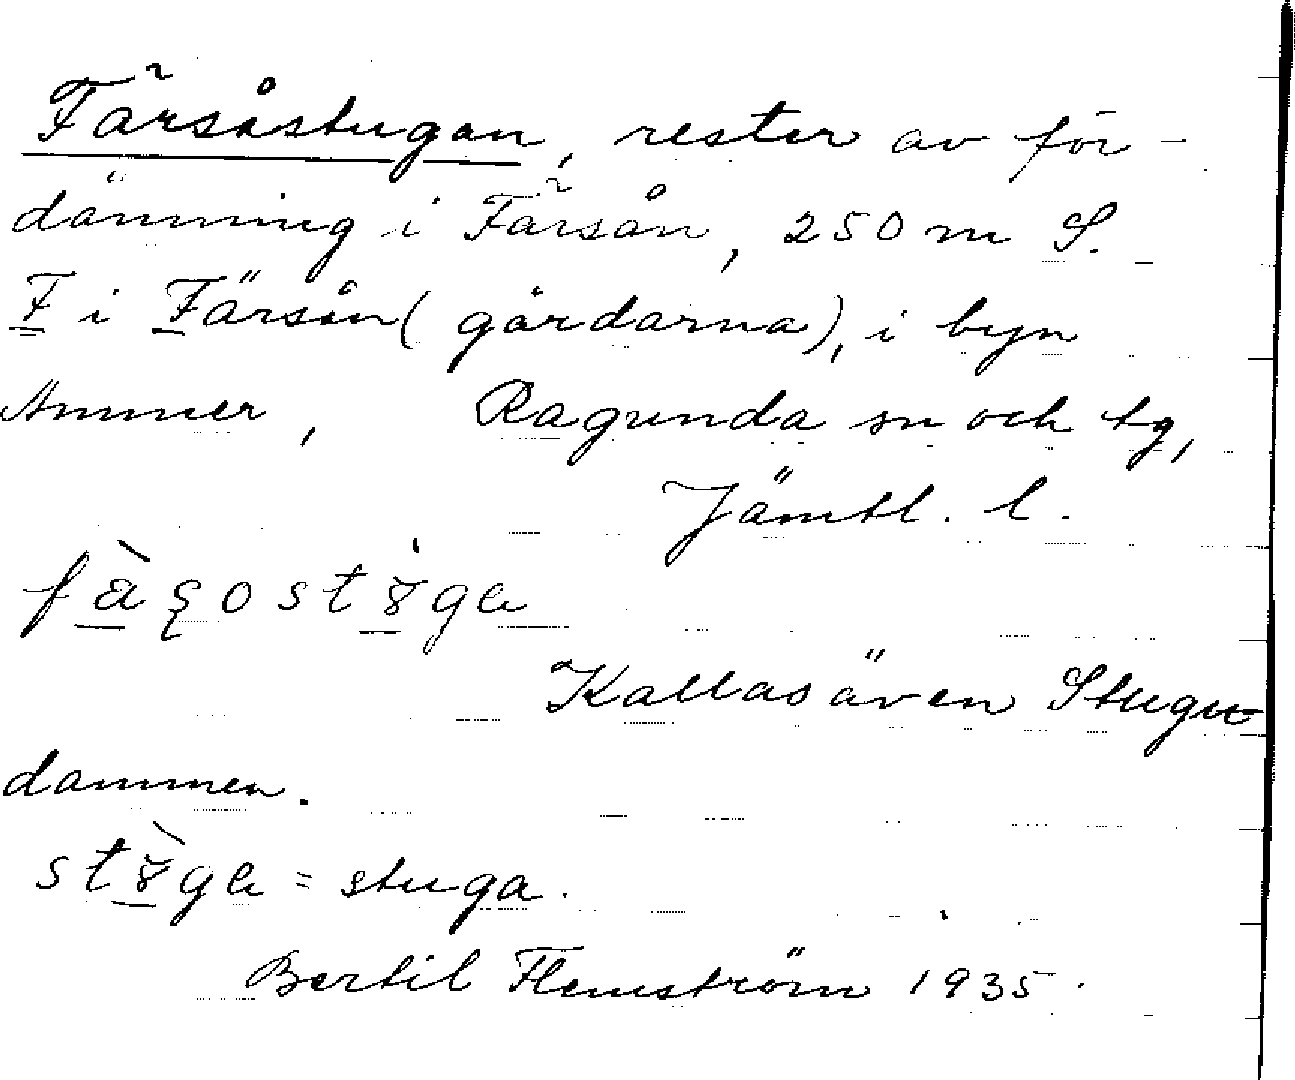 Färsåstugan, rester av för-
dämning i Färsån, 250 m S.
F i Färsån (gårdarna), i byn
Ammer, Ragunda sn och tg,
Jämtl. l.
Kallas även Stugu-
dammen.
= stuga.
Bertil Flemström 1935.